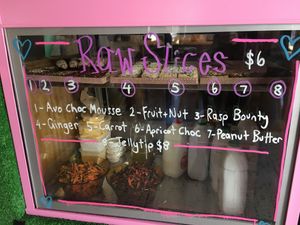 Raw Slices $6
1 2 3 4 5 6 7 8
1- Avo Choc Mousse 2- Fruit+Nut 3- Rasp Bounty
4- Ginger 5- Carrot 6- Apricot Choc 7- Peanut Butter
8- Jellytip $8